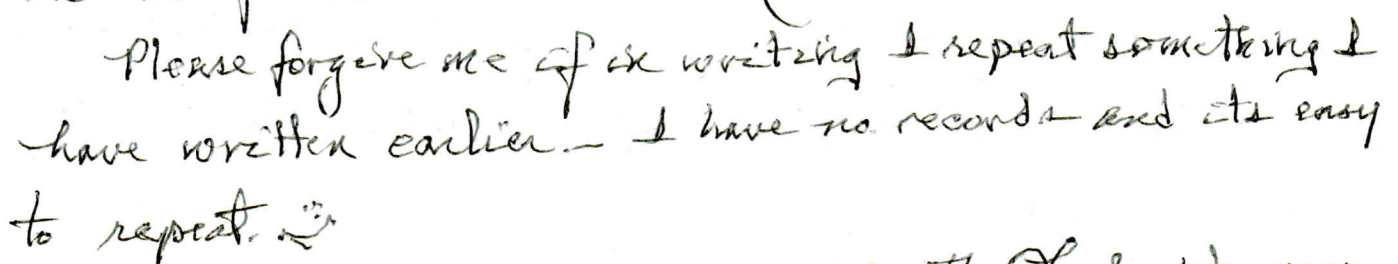 Please forgive me if in writing I repeat something I
have written earlier – I have no records and its easy
to repeat.